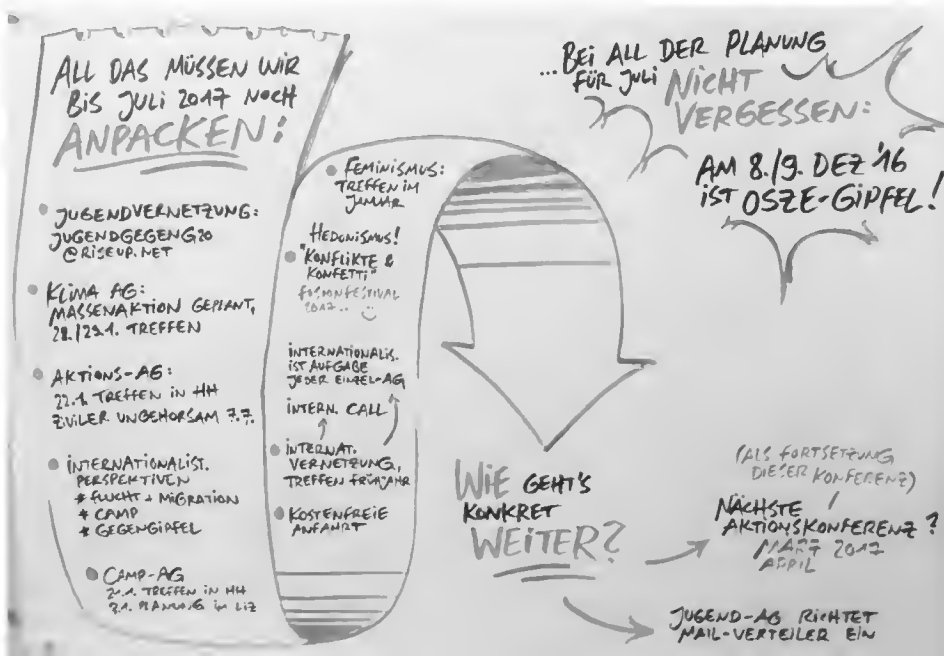 ALL DAS MÜSSEN WIR
BIS JULI 2017 NOCH
ANPACKEN:
JUGENDVERNETZUNG:
JUGENDGEGENG20
@RISEUP.NET
KLIMA AG:
MASSENAKTION GEPLANT,
28./29.1. TREFFEN
AKTIONS-AG:
22.1. TREFFEN IN HH
ZIVILER UNGEHORSAM 7.7.
INTERNATIONALIST.
PERSPEKTIVEN
* FLUCHT + MIGRATION
* CAMP
* GEGENGIPFEL
CAMP-AG
TREFFEN IN HH
PLANUNG IM LIZ
FEMINISMUS:
TREFFEN IM
JANUAR
HEDONISMUS!
"KONFLIKTE &
KONFETTI"
FUSIONFESTIVAL
2017..
INTERNATIONALIS.
IST AUFGABE
JEDER EINZEL-AG
INTERN. CALL
INTERNAT.
VERNETZUNG,
TREFFEN FRÜHJAHR
KOSTENFREIE
ANFAHRT
...BEI ALL DER PLANUNG
FÜR JULI NICHT
VERGESSEN:
AM 8./9. DEZ '16
IST OSZE-GIPFEL!
WIE GEHT'S
KONKRET
WEITER?
(ALS FORTSETZUNG
DIESER KONFERENZ)
NÄCHSTE
AKTIONSKONFERENZ?
MÄRZ 2017
APRIL
JUGEND-AG RICHTET
MAIL-VERTEILER EIN